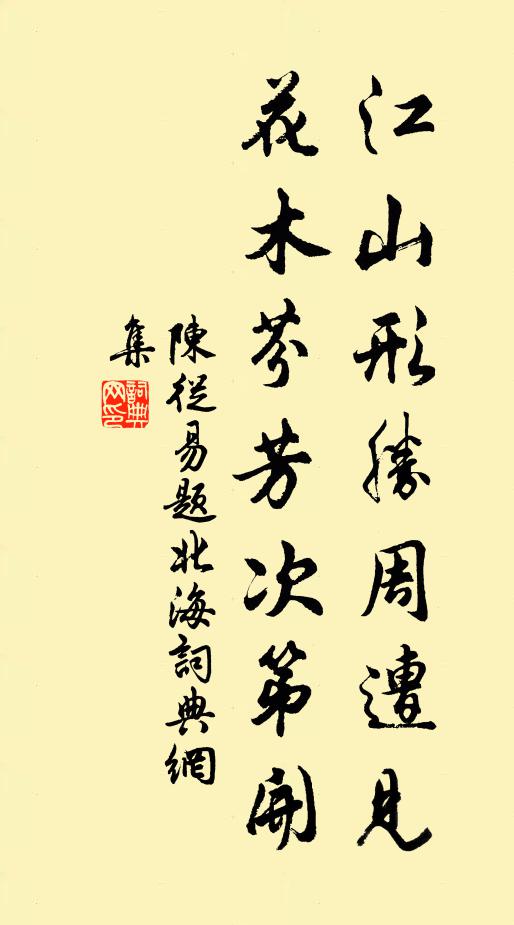 江山形勝周遭見
花木芬芳次第開
陳從易題北海詞典網
集
詞典网印